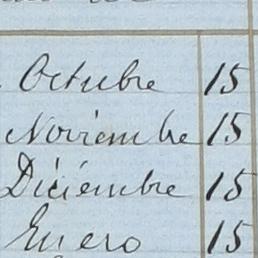 Octubre 15
Noviembre 15
Diciembre 15
Enero 15